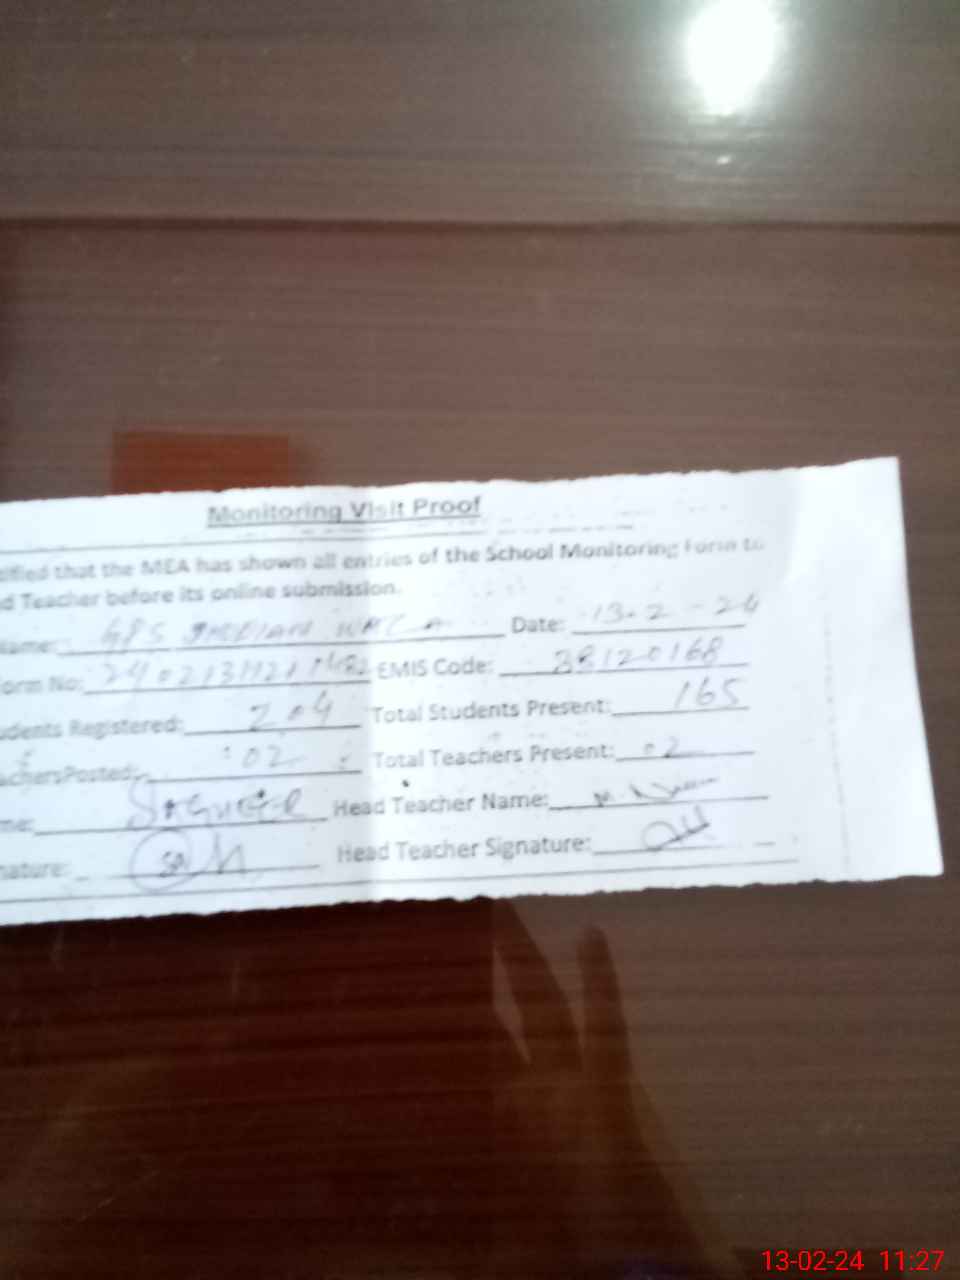 Monitoring Visit Proof
tified that the MEA has shown all entries of the School Monitoring Form to
d Teacher before its online submission.
Name: GPS Date: 13-2-24
orm No: EMIS Code: 38120168
udents Registered: 204 Total Students Present: 165
achersPosted: 02 Total Teachers Present: 02
me: Head Teacher Name:
nature: Head Teacher Signature:
13-02-24 11:27